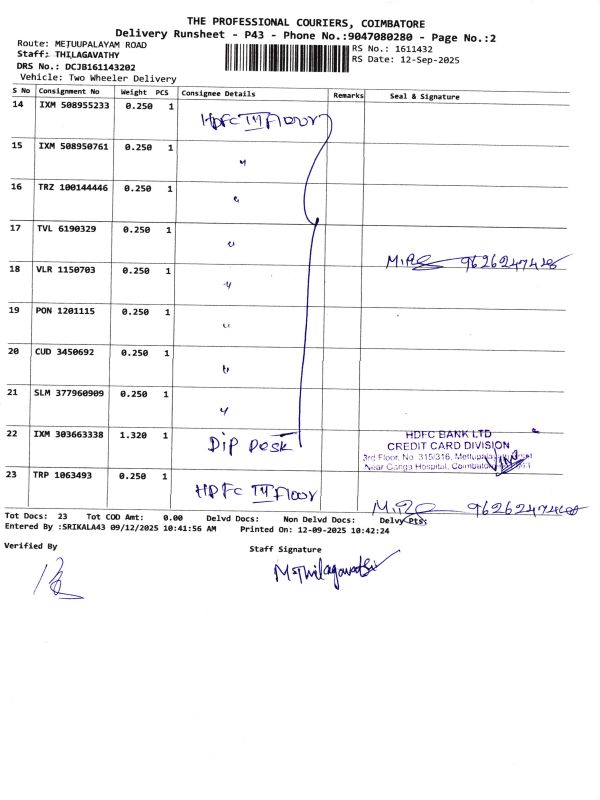 THE PROFESSIONAL COURIERS, COIMBATORE
Delivery Runsheet - P43 - Phone No.:9047080280 - Page No.:2
Route: METUUPALAYAM ROAD
RS No.: 1611432
Staff: THILAGAVATHY
RS Date: 12-Sep-2025
DRS No.: DCJB161143202
Vehicle: Two Wheeler Delivery
S No Consignment No Weight PCS Consignee Details Remarks Seal & Signature
14 IXM 508955233 0.250 1 HDFC III Floor
15 IXM 508950761 0.250 1 "
16 TRZ 100144446 0.250 1 "
17 TVL 6190329 0.250 1 "
18 VLR 1150703 0.250 1 "
19 PON 1201115 0.250 1 "
20 CUD 3450692 0.250 1 "
21 SLM 377960909 0.250 1 "
22 IXM 303663338 1.320 1 DIP Desk
HDFC BANK LTD
CREDIT CARD DIVISION
3rd Floor, No. 315/316, Mettupalayam
Near Ganga Hospital, Coimbatore
23 TRP 1063493 0.250 1 HDFC III Floor
Tot Docs: 23 Tot COD Amt: 0.00 Delvd Docs: Non Delvd Docs: Delvy Pts:
Entered By :SRIKALA43 09/12/2025 10:41:56 AM Printed On: 12-09-2025 10:42:24
Verified By
Staff Signature
M.Thilagavathi